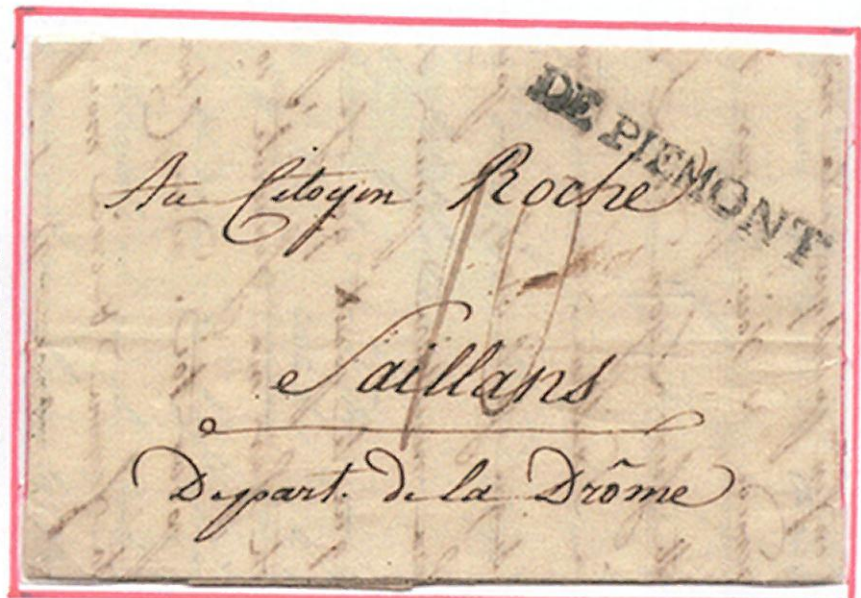 DE PIEMONT
Au Citoyen Roche
10
Saillans
Depart. de la Drôme